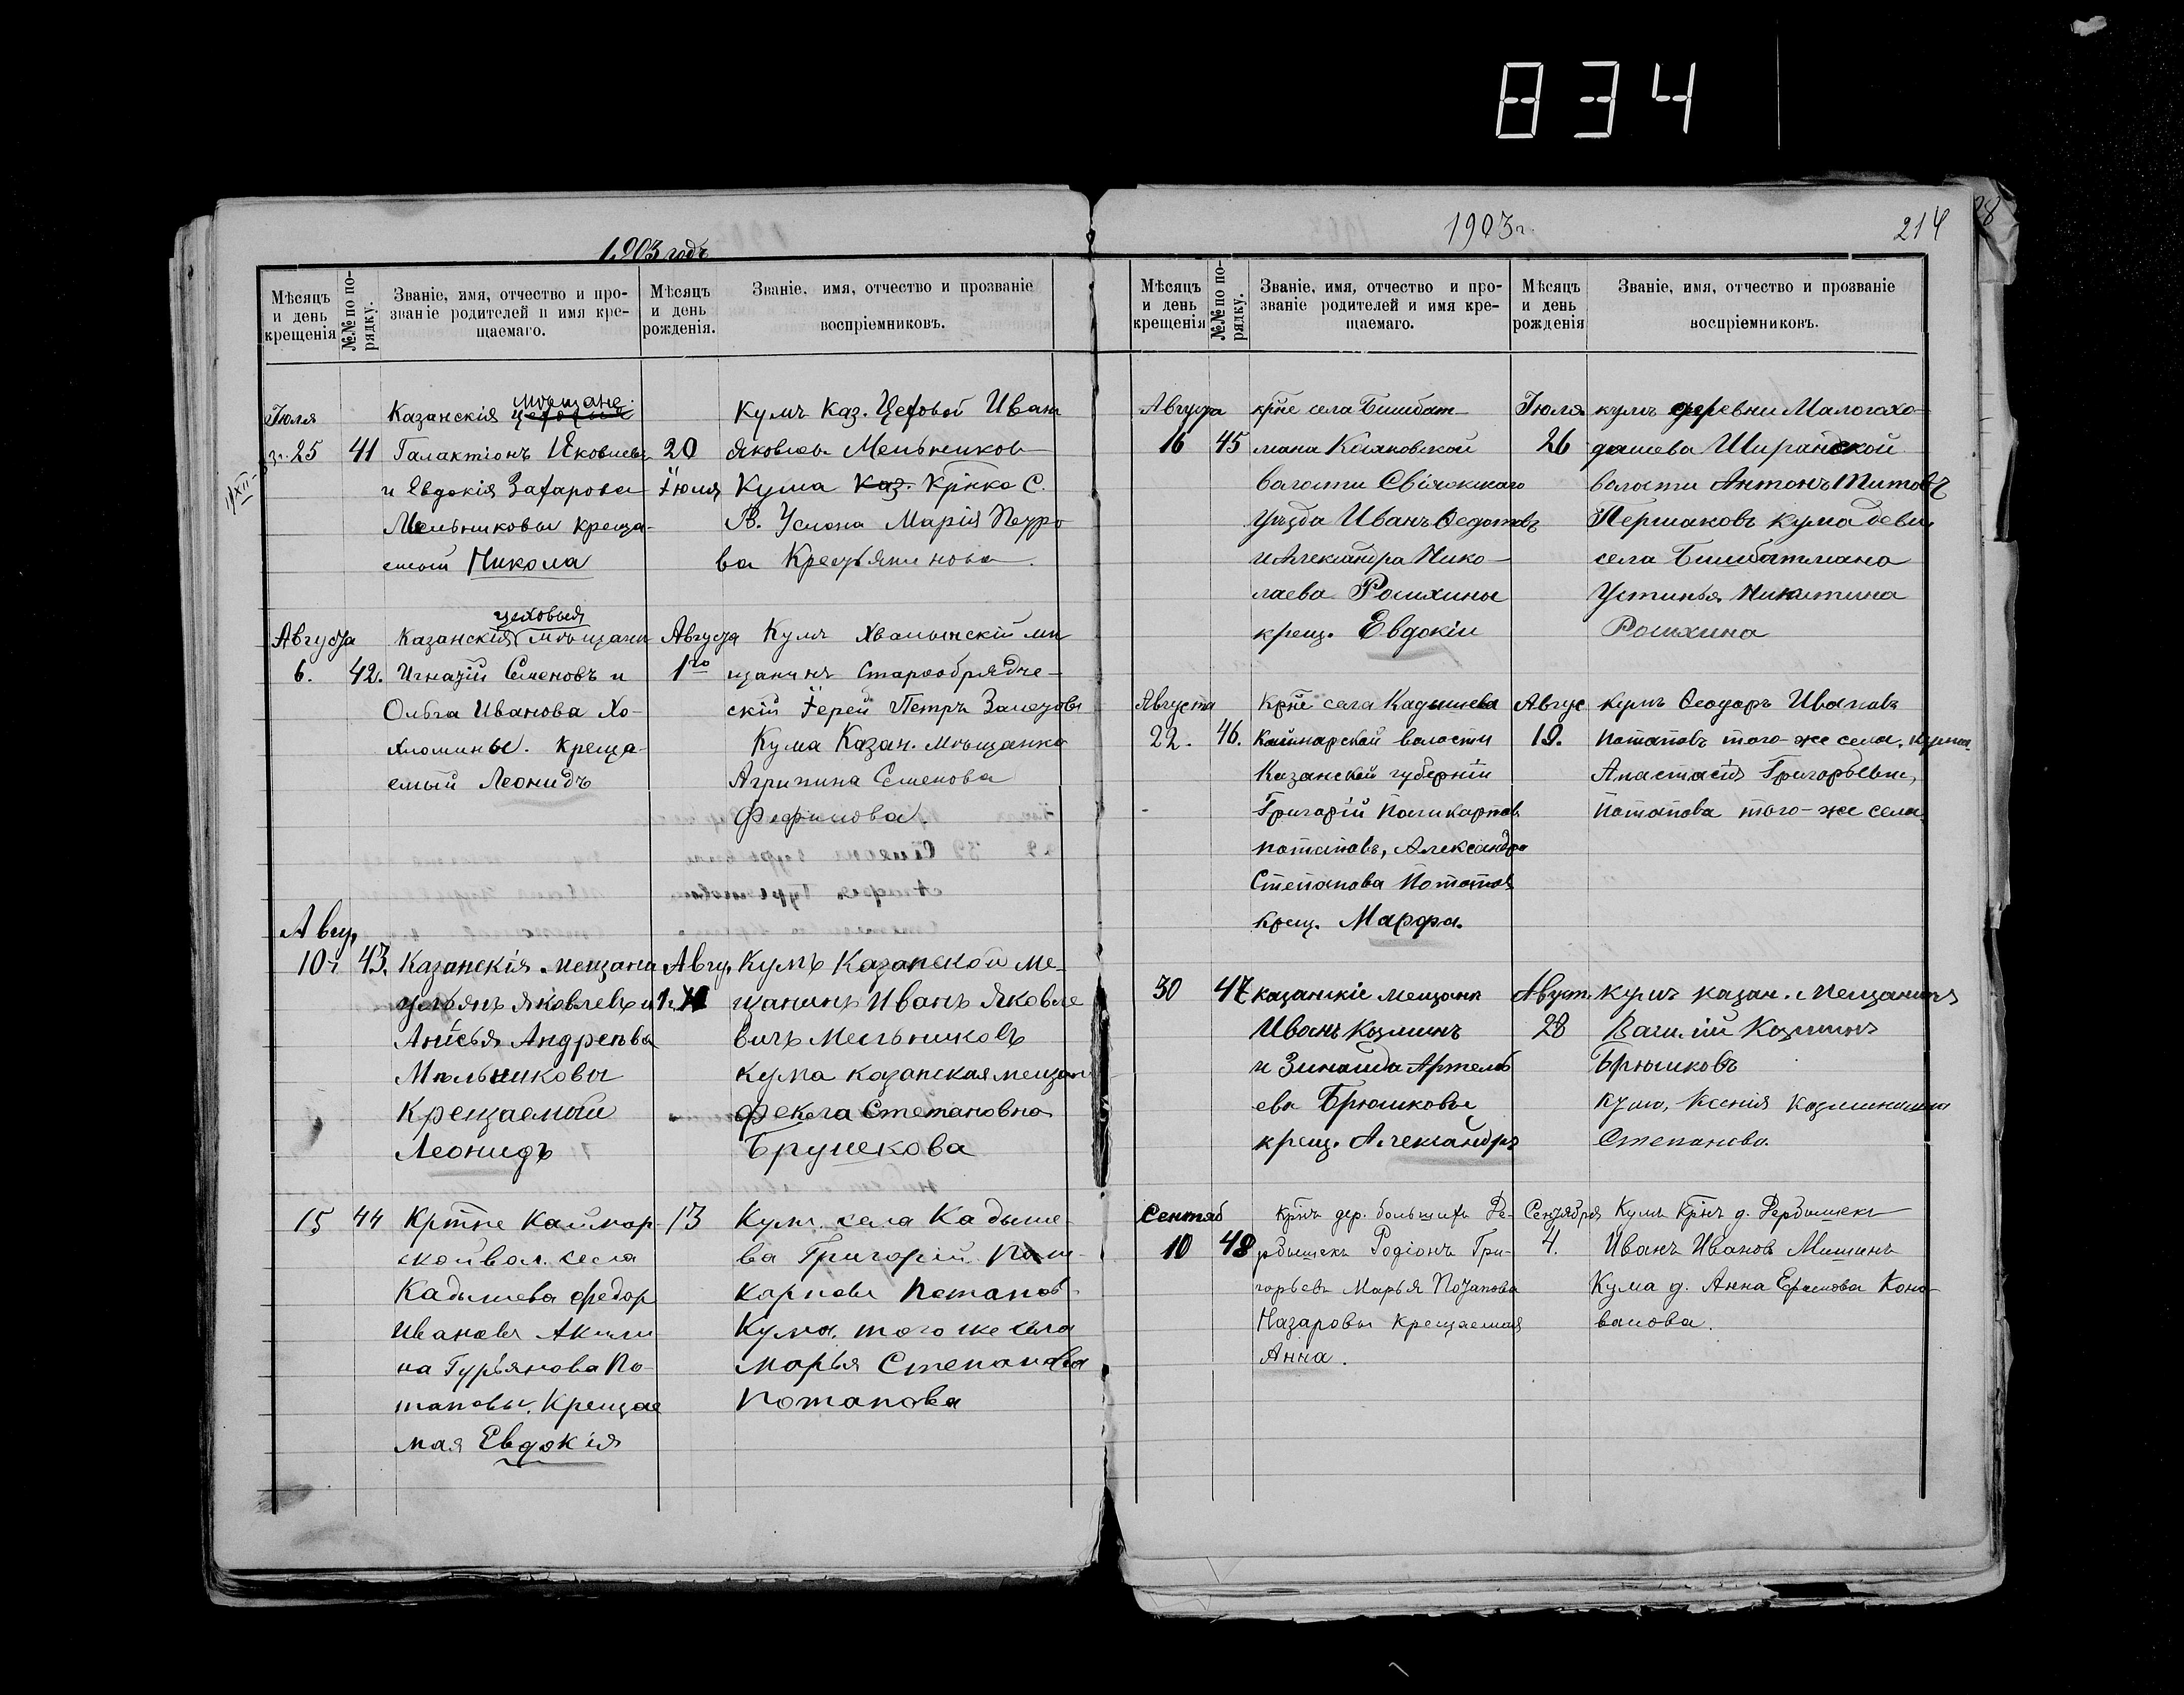 834
1903 годъ
Мѣсяцъ и день крещенія
№№ по порядку.
Званіе, имя, отчество и прозваніе родителей и имя крещаемаго.
Мѣсяцъ и день рожденія.
Званіе, имя, отчество и прозваніе воспріемниковъ.
Іюля
25 41
Казанскія цеховыя мѣщане
Галактіонъ Яковлевъ
и Евдокія Захарова
Мельниковы креща-
емый Никола
20
Іюля
Кумъ Каз. Цеховой Иванъ
Яковлевъ Мельниковъ
Кума Каз. Крткс С.
В. Услона Марія Петро
ва Крестьянинова.
Августа
6. 42.
цеховыя
Казанскія мѣщани
Игнатій Семеновъ и
Ольга Иванова Хо-
хломины. Креща-
емый Леонидъ
Августа
1го
Кумъ Хвалынскій мѣ
щанинъ Старообрядче-
скій Іерей Петръ Залетовъ
Кума Казан. мѣщанка
Агрипина Семенова
Фефилова.
Авгу,
10го 43.
Казанскія мещани
Ульянъ Яковлевъ и
Анисья Андреѣва
Мѣльниковы
Крещаемый
Леонидъ
Авгу,
Кумъ Казанской ме-
щанинъ Иванъ Яковле
вичъ Мельниковъ
кума казанская мещан
Фекла Степановна
Брушекова
15 44
Кртне Каймар-
ской вол. села
Кадышева Федор
Ивановъ Акули
на Гурьянова По-
таповы. Крещае
мая Евдокія
13
Кумъ села Кадыше-
ва Григорій Поли-
карповъ Потапов-
Кума, того же села
Марья Степанова
Потапова
1903 г.
214
Мѣсяцъ и день крещенія
№№ по порядку.
Званіе, имя, отчество и прозваніе родителей и имя крещаемаго.
Мѣсяцъ и день рожденія
Званіе, имя, отчество и прозваніе воспріемниковъ.
Августа
16 45
крне села Бишбат-
мана
волости Свіяжскаго
Уѣзда Иванъ Ѳедотовъ
и Александра Нико-
лаева
крещ. Евдокіи
Іюля
26
кумъ деревни Малогохо-
дяшева Ширданской
волости Антонъ Титовъ
Першаковъ кума девиц
села Бишбатмана
Устинья Никитина
Августа
22. 46.
Крне села Кадышева
Каймарской волости
Казанской губерніи
Григорій Поликарповъ
Потаповъ, Александра
Степанова Потапова
крещ. Марфа.
Авгус
19.
кумъ Ѳеодоръ Ивановъ
Потаповъ того-же села, кума
Анастасія Григорьевна,
Потапова того-же села
30 47
казанскіе мещани
Иванъ Козминъ
и Зинаида Артемь
ева Брюшковы
крещ. Александръ
Август.
28
Кумъ казан. Мещанинъ
Василій Козминъ
Брюшковъ
Кума, Ксенія Козминишна
Степанова.
Сентяб
10 48
Крнъ дер. большихъ Де-
рбышекъ Родіонъ Гри-
горьевъ Марья Потапова
Назаровы Крещаемая
Анна.
Сентября
4.
Кумъ Крнъ д. Дербышекъ
Иванъ Ивановъ Мишинъ
Кума д. Анна Ефимова Коно-
валова.